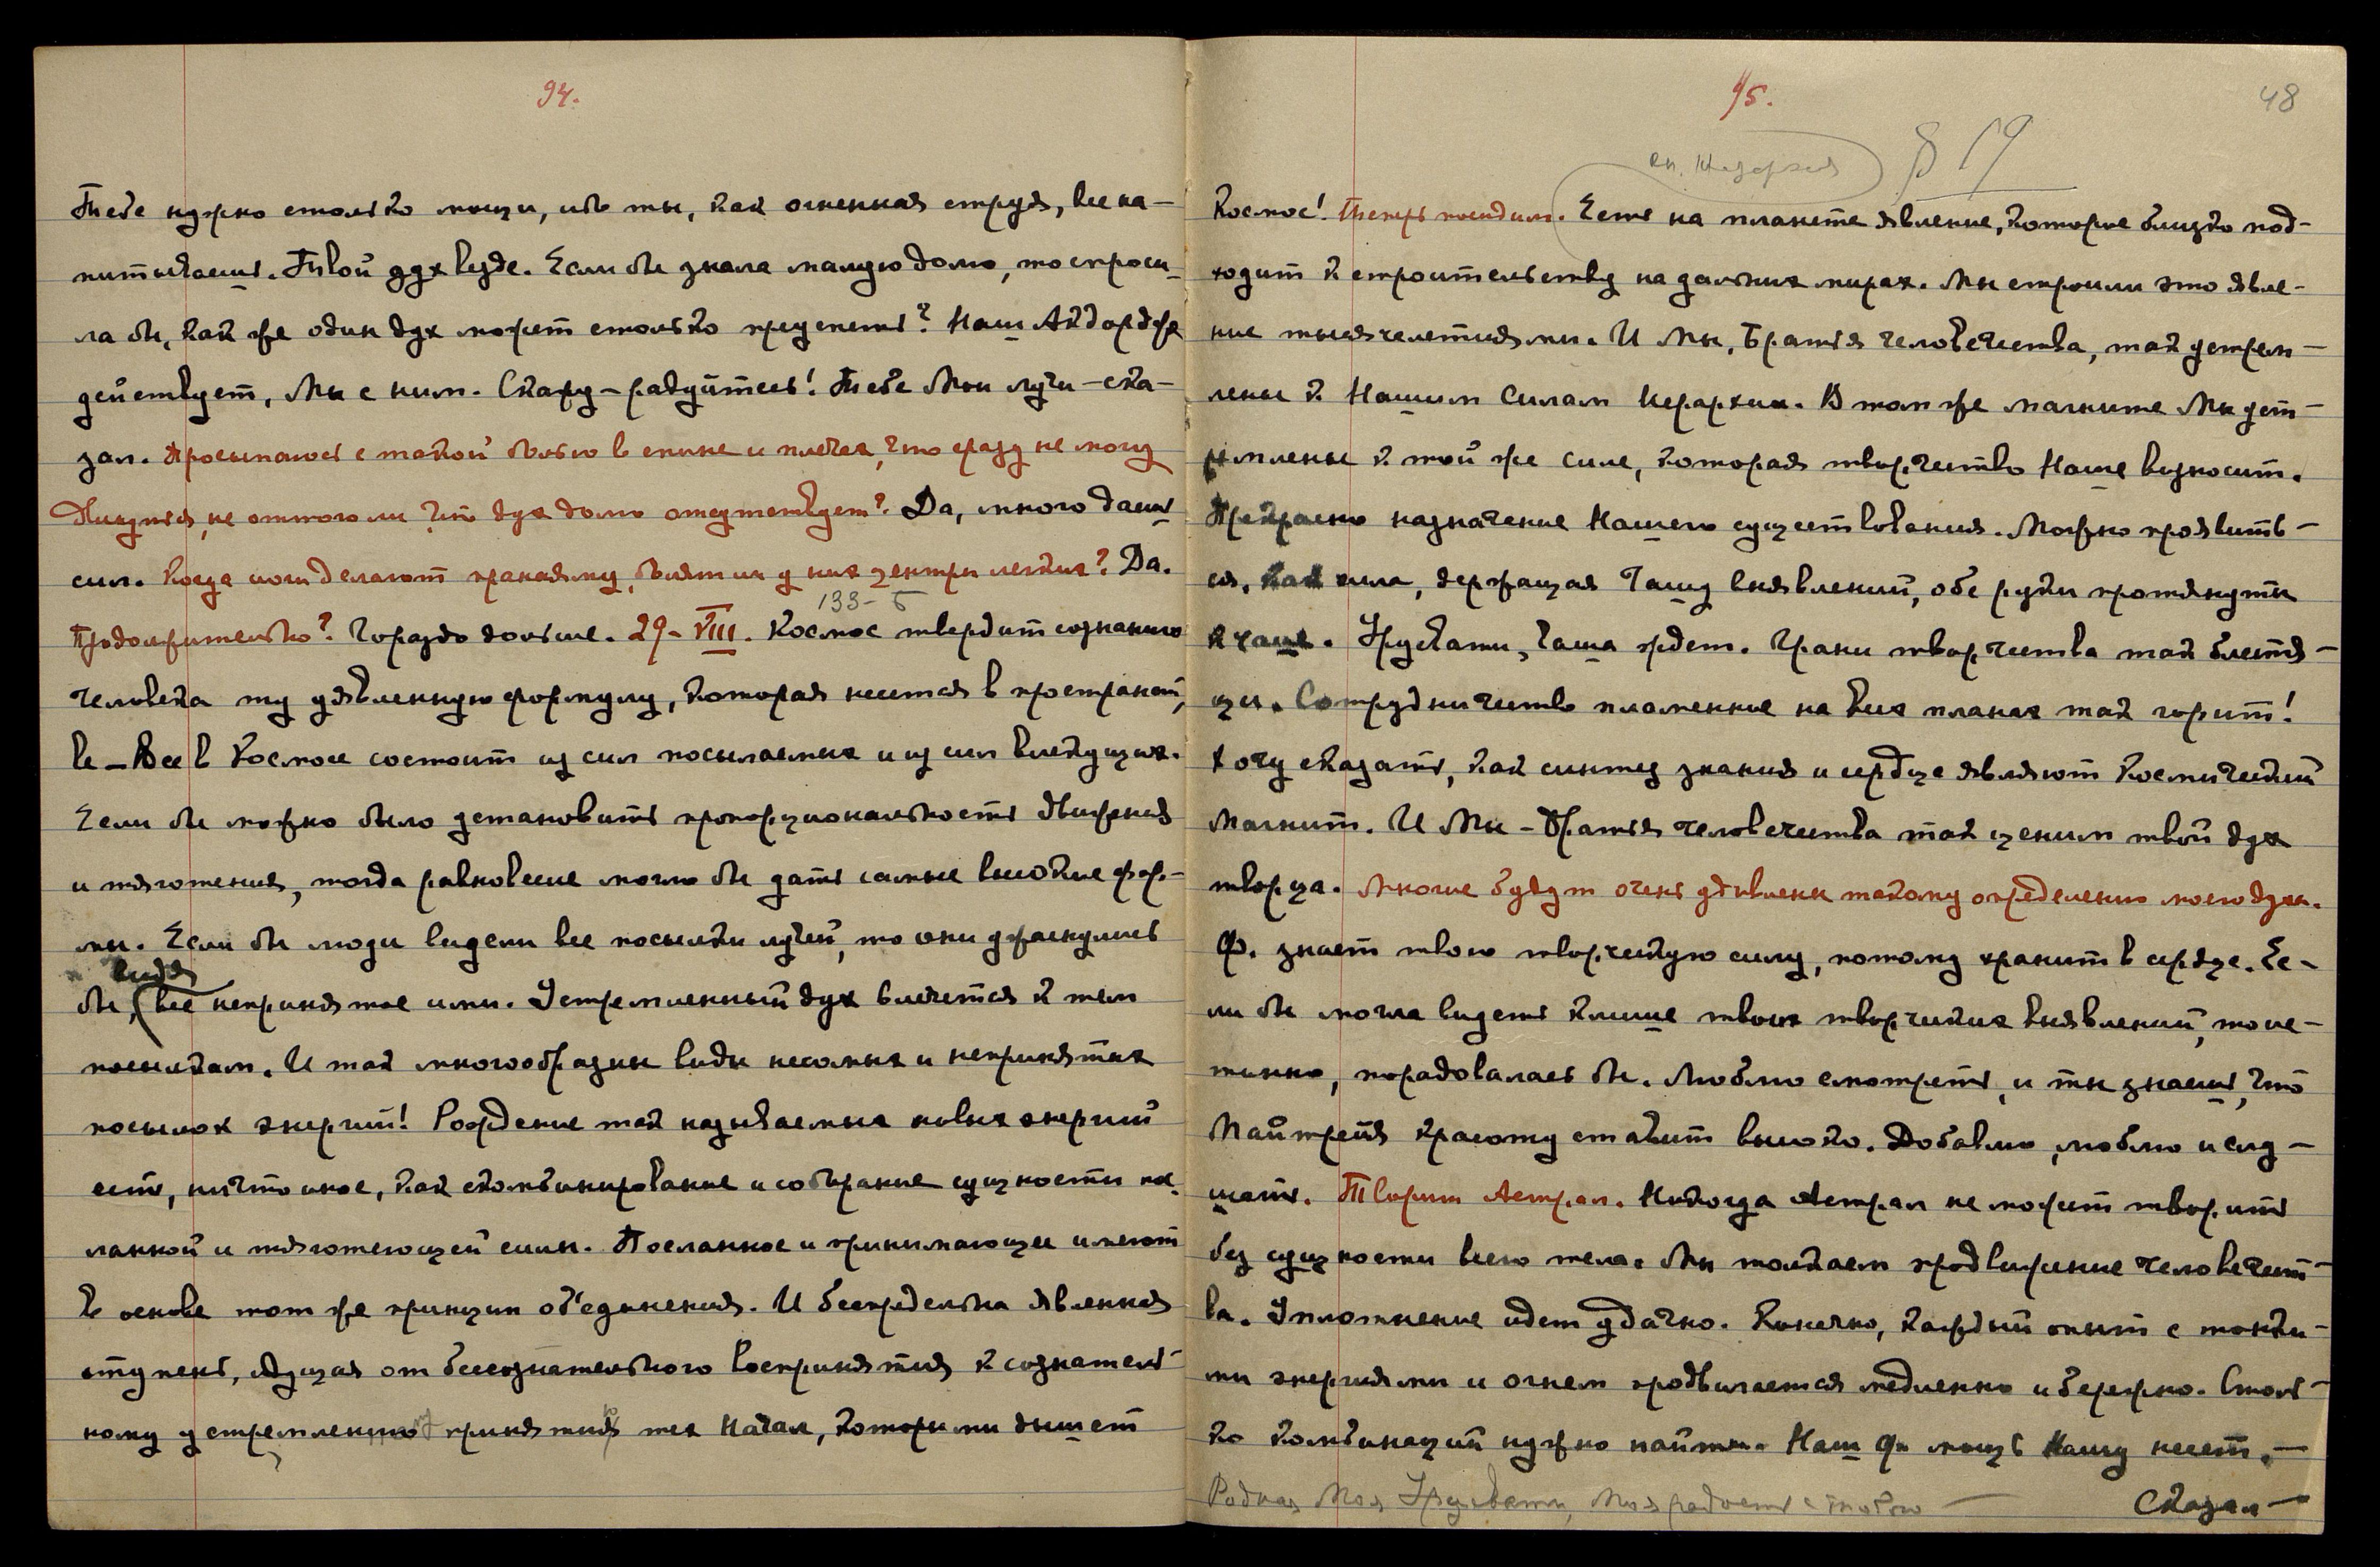 94.
Тебе нужно столько мощи, ибо ты, как огненная струя, все на-
питываешь. Твой дух везде. Если бы знала малую долю, то спроси-
ла бы, как же один дух может столько преуспеть? Наш Акдордже
действует, Мы с ним. Скажу – радуйтесь! Тебе Мои лучи – ска-
зал. Просыпаюсь с такой болью в спине и плечах, что сразу не могу
двинуться, не оттого ли, что дух долго отсутствует? Да, много даешь
сил. Когда иоги делают пранаяму, болят ли у них центры легких? Да.
133 - Б
Продолжительно? Гораздо дольше. 29 - VIII. Космос твердит сознанию
человека ту уявленную формулу, которая несется в пространст-
ве – Все в Космосе состоит из сил посылаемых и из сил влекущих.
Если бы можно было установить пропорциональность движения
и тяготения, тогда равновесие могло бы дать самые высокие фор-
мы. Если бы люди видели все посылки лучей, то они ужаснулись
видя
бы, все непринятое ими. Устремленный дух влечется к тем
посылкам. И так многообразны виды несомых и непринятых
посылок энергий! Рождение так называемых новых энергий
есть, ничто иное, как скомбинирование и собирание сущности пос-
ланной и тяготеющей силы. Посланное и принимающее имеют
в основе тот же принцип об'единения. И беспредельна явленная
ступень, идущая от бессознательного восприятия к сознатель-
ному устремлению принятия тех Начал, которыми дышет
95.
48
кн. Иерархия § 19
Космос! Теперь посидим. Есть на планете явление, которое близко под-
ходит к строительству на дальних мирах. Мы строили это явле-
ние тысячелетиями. И Мы, Братья человечества, так устрем-
лены к Нашим Силам Иерархии. В том же магните Мы уст-
ремлены к той же силе, которая творчество Наше возносит.
Прекрасно назначение Нашего существования. Можно проявить-
ся, как сила, держащая Чашу выявлений, обе руки протянуты
к чаше. Урусвати, Чаша ждет. Грани творчества так блестя-
щи. Сотрудничество пламенное на всех планах так горит!
Хочу сказать, как синтез знания и сердце являют Космический
Магнит. И Мы – Братья человечества так ценим твой дух
творца. Многие будут очень удивлены такому определению моего духа.
Ф. знает твою творческую силу, потому хранит в сердце. Ес-
ли бы могла видеть клише твоих творческих выявлений, то ис-
тинно, порадовалась бы. Люблю смотреть, и ты знаешь, что
Майтрейя красоту ставит высоко. Добавлю, люблю и слу-
шать. Творит Астрал. Никогда Астрал не может творить
без сущности всего тела. Мы толкаем продвижение человечест-
ва. Уплотнение идет удачно. Конечно, каждый опыт с тонки-
ми энергиями и огнем продвигается медленно и бережно. Столь-
ко комбинаций нужно найти. Наш Ф. мощь Нашу несет. –
Родная Моя Урусвати, Моя радость с тобою –
Сказал –